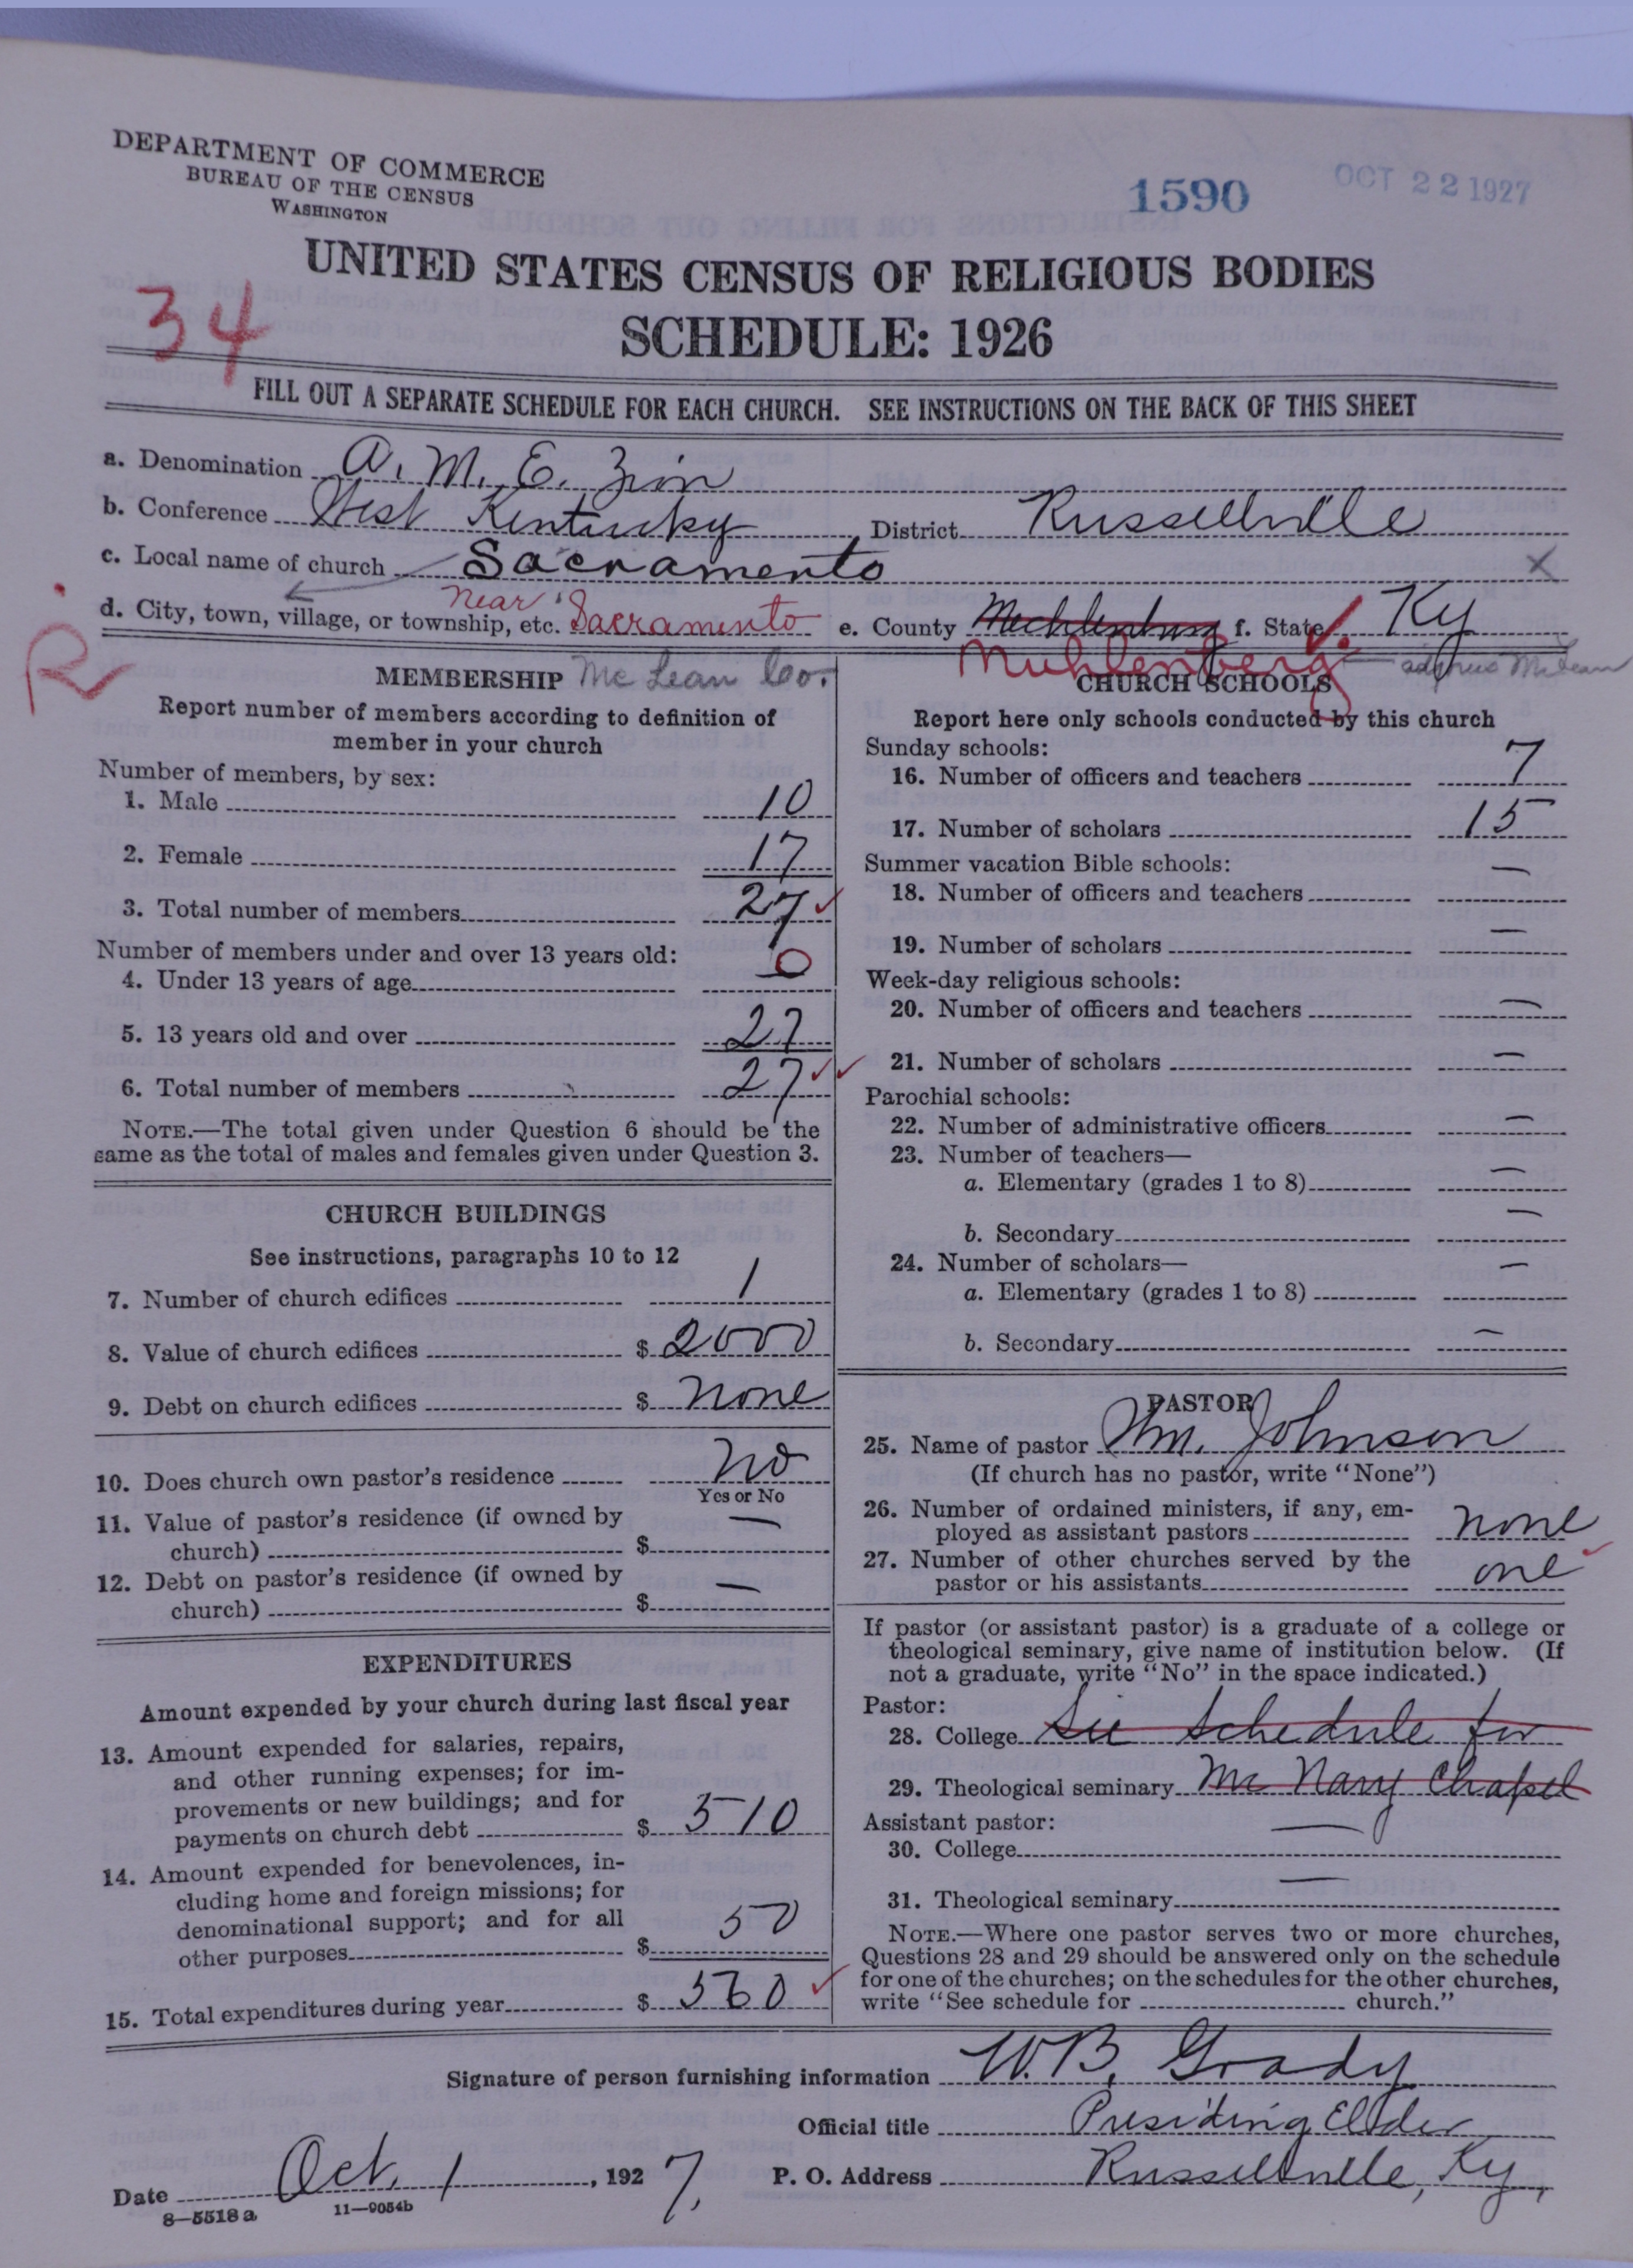 DEPARTMENT OF COMMERCE
BUREAU OF THE CENSUS
WASHINGTON
1590
OCT 22 1927
UNITED STATES CENSUS OF RELIGIOUS BODIES
34
SCHEDULE: 1926
FILL OUT A SEPARATE SCHEDULE FOR EACH CHURCH. SEE INSTRUCTIONS ON THE BACK OF THIS SHEET
a. Denomination A. M. E. Zion
b. Conference West Kentucky, District Russellville
c. Local name of church Sacramento X
d. City, town, village, or township, etc. near Sacramento e. County Mechlenburg f. State Ky
R
Muhlenberg McLean
MEMBERSHIP McLean Co.
Report number of members according to definition of
member in your church
Number of members, by sex:
1. Male 10
2. Female 17
3. Total number of members 27
Number of members under and over 13 years old:
4. Under 13 years of age 0
5. 13 years old and over 27
6. Total number of members 27
NOTE.—The total given under Question 6 should be the
same as the total of males and females given under Question 3.
CHURCH BUILDINGS
See instructions, paragraphs 10 to 12
7. Number of church edifices 1
8. Value of church edifices $ 2000
9. Debt on church edifices $ none
10. Does church own pastor's residence No
Yes or No
11. Value of pastor's residence (if owned by
church) $ —
12. Debt on pastor's residence (if owned by
church) $ —
EXPENDITURES
Amount expended by your church during last fiscal year
13. Amount expended for salaries, repairs,
and other running expenses; for im-
provements or new buildings; and for
payments on church debt $ 510
14. Amount expended for benevolences, in-
cluding home and foreign missions; for
denominational support; and for all
other purposes $ 50
15. Total expenditures during year $ 560
CHURCH SCHOOLS
Report here only schools conducted by this church
Sunday schools:
16. Number of officers and teachers 7
17. Number of scholars 15
Summer vacation Bible schools:
18. Number of officers and teachers —
19. Number of scholars —
Week-day religious schools:
20. Number of officers and teachers —
21. Number of scholars —
Parochial schools:
22. Number of administrative officers —
23. Number of teachers—
a. Elementary (grades 1 to 8) —
b. Secondary —
24. Number of scholars—
a. Elementary (grades 1 to 8) —
b. Secondary —
PASTOR
25. Name of pastor Wm. Johnson
(If church has no pastor, write "None")
26. Number of ordained ministers, if any, em-
ployed as assistant pastors none
27. Number of other churches served by the
pastor or his assistants one
If pastor (or assistant pastor) is a graduate of a college or
theological seminary, give name of institution below. (If
not a graduate, write "No" in the space indicated.)
Pastor:
28. College See Schedule for
29. Theological seminary Mc Nary Chapel
Assistant pastor:
30. College —
31. Theological seminary —
NOTE.—Where one pastor serves two or more churches,
Questions 28 and 29 should be answered only on the schedule
for one of the churches; on the schedules for the other churches,
write "See schedule for church."
Signature of person furnishing information W. B. Grady
Official title Presiding Elder
Date Oct. 1, 1927, P. O. Address Russellville, Ky,
8—5518a 11—9054b